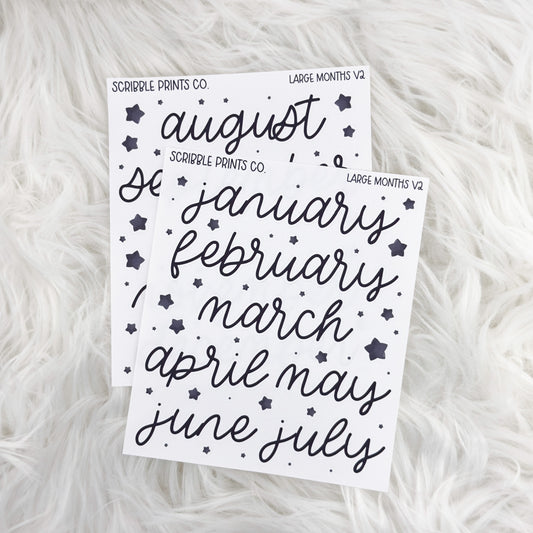 SCRIBBLE PRINTS CO. LARGE MONTHS V2
august
SCRIBBLE PRINTS CO. LARGE MONTHS V2
january
february
march
april may
june july